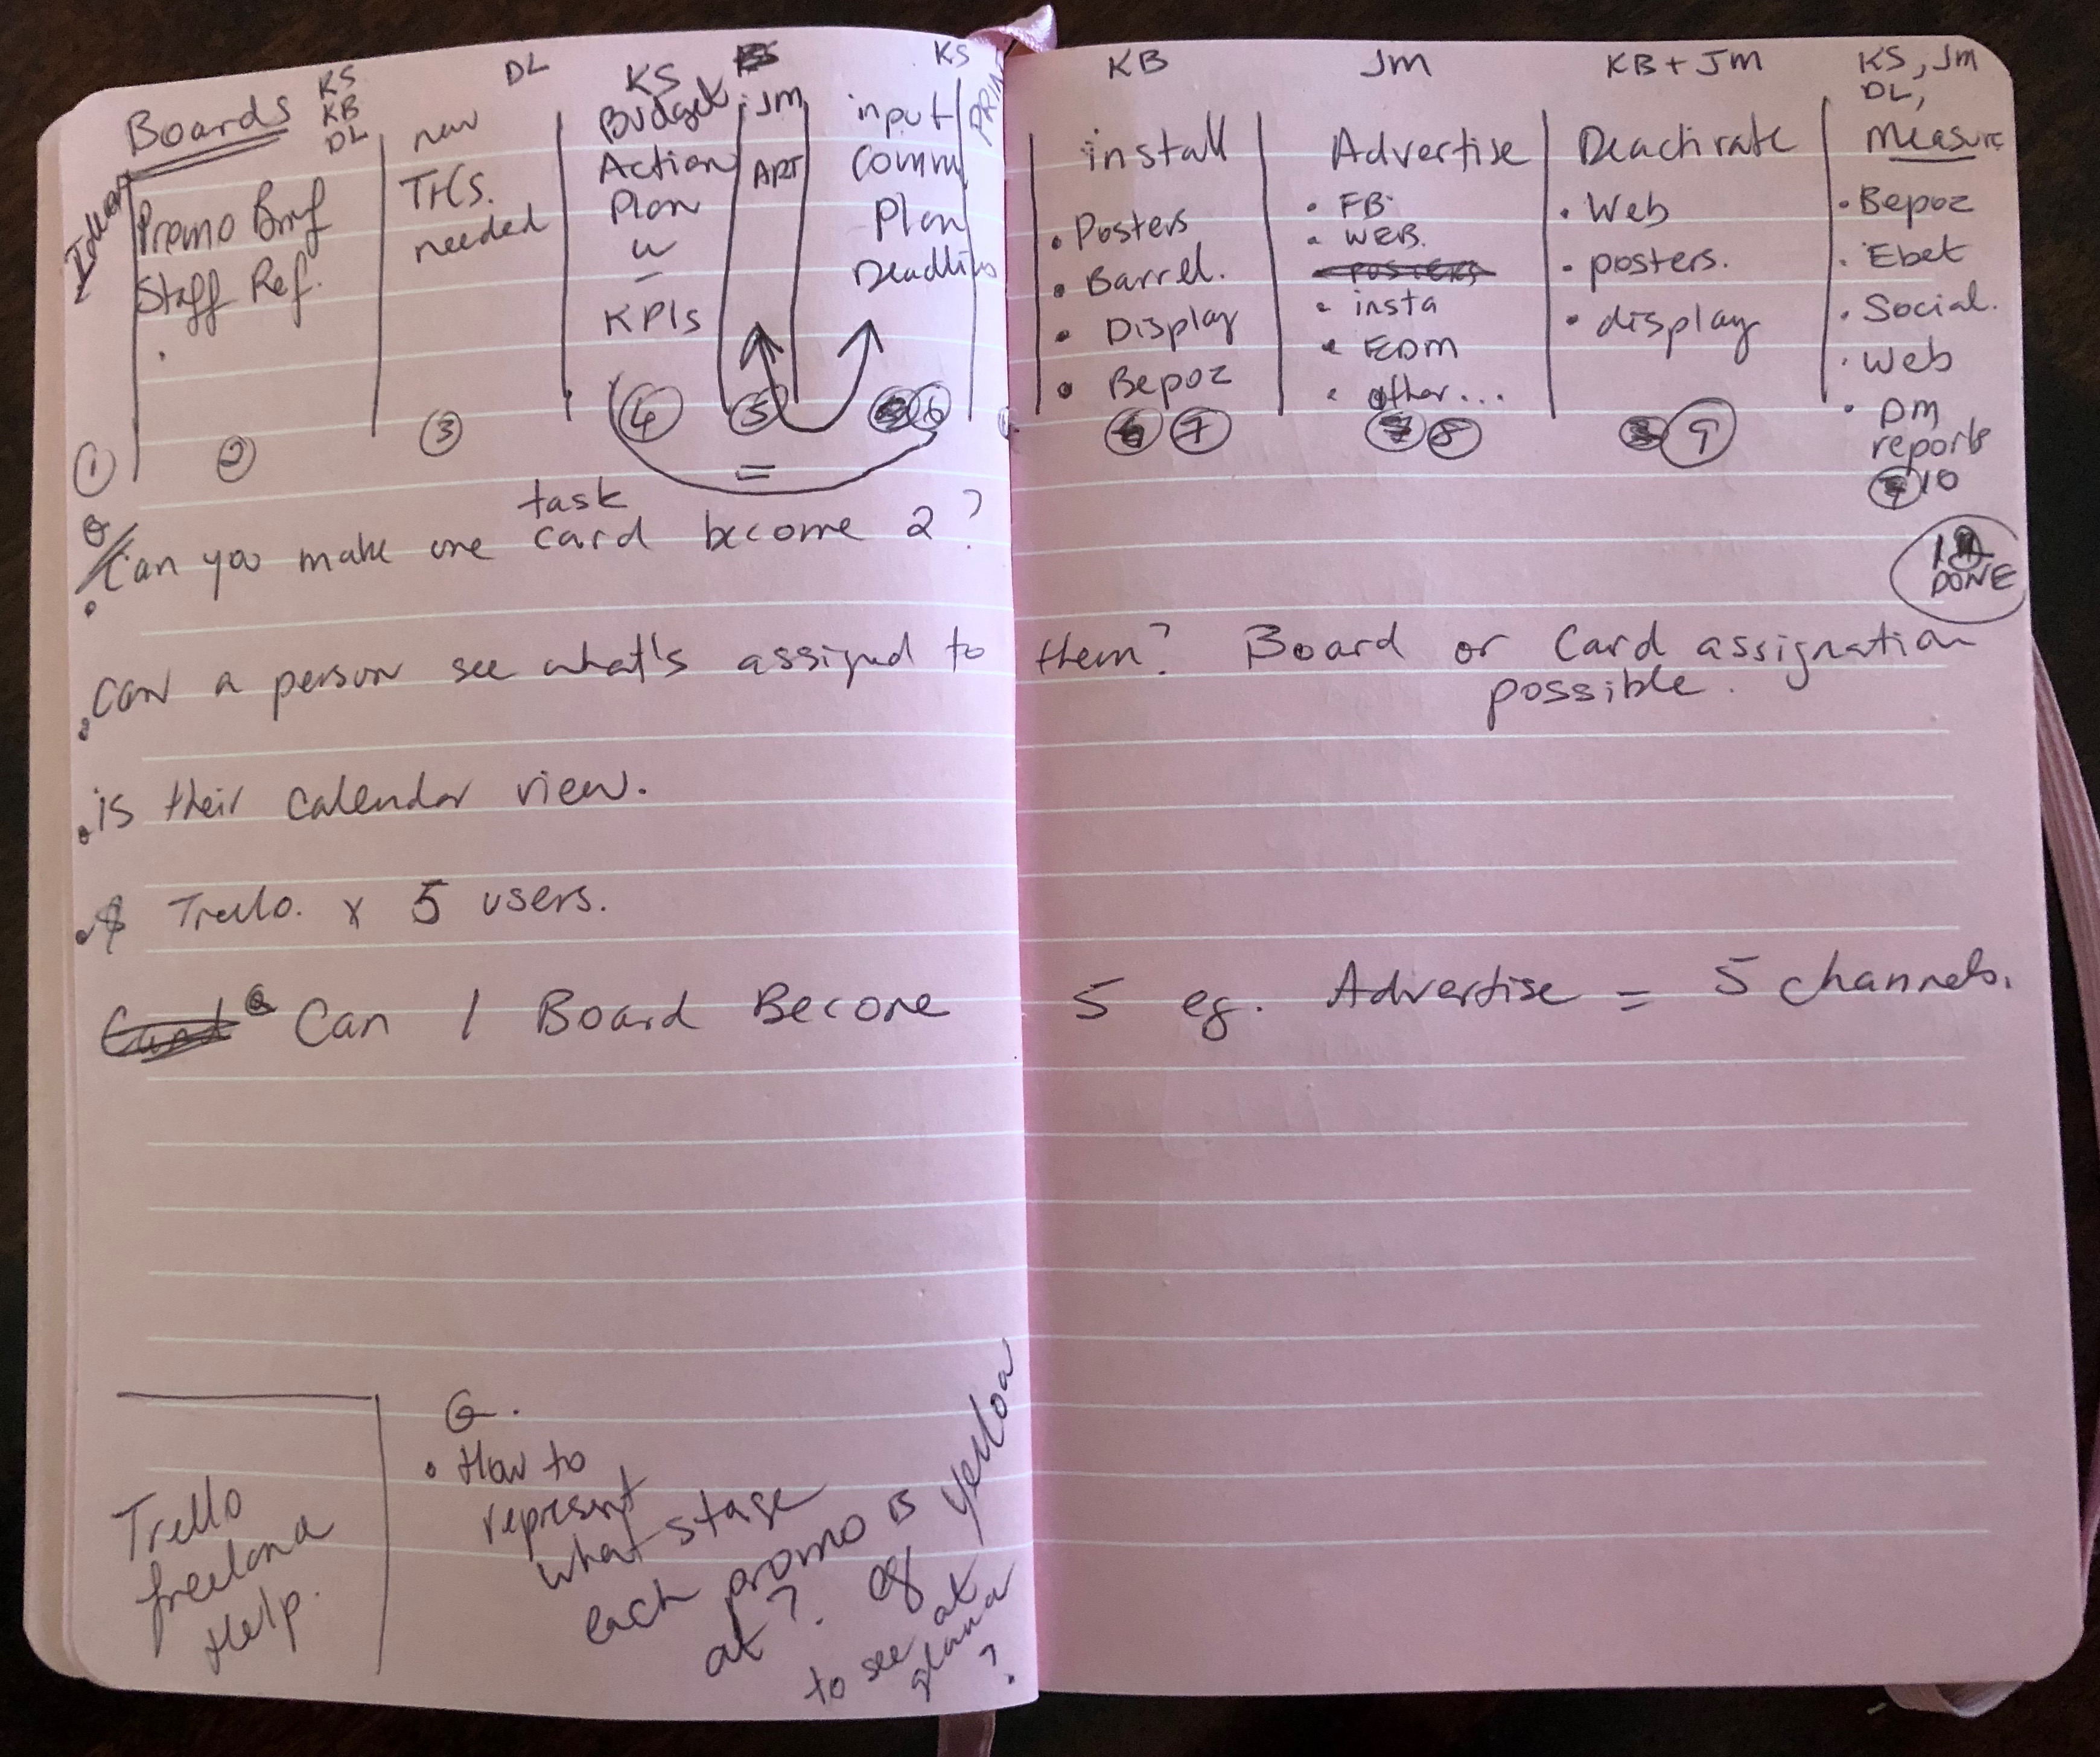 Boards
KS
KB
DL
Promo Brief
Staff Ref.
①
②
DL
new
T+CS.
needed
③
KS
Budget
Action
Plan
KPIs
④
JM
ART
⑤
KS
input
Comm
Plan
Deadlines
⑥
PRINT
KB
install
• Posters
• Barrel.
• Display
• Bepoz
⑦
JM
Advertise
• FB.
• WEB.
• insta
• EDM
• other...
⑧
KB + JM
Deactivate
• Web
• posters.
• display
⑨
KS, JM
DL,
Measure
• Bepoz
• Ebet
• Social.
• Web
• DM
reports
10
DONE
=
Q
task
• Can you make one card become 2?
• can a person see what's assigned to them? Board or Card assignation
possible.
• is their calendar view.
• $ Trello. x 5 users.
• Can 1 Board Become 5 eg. Advertise = 5 channels.
Trello
freelance
Help.
Q.
• How to
represent
what stage
each promo is
at? eg yellow
to see at
glance
?